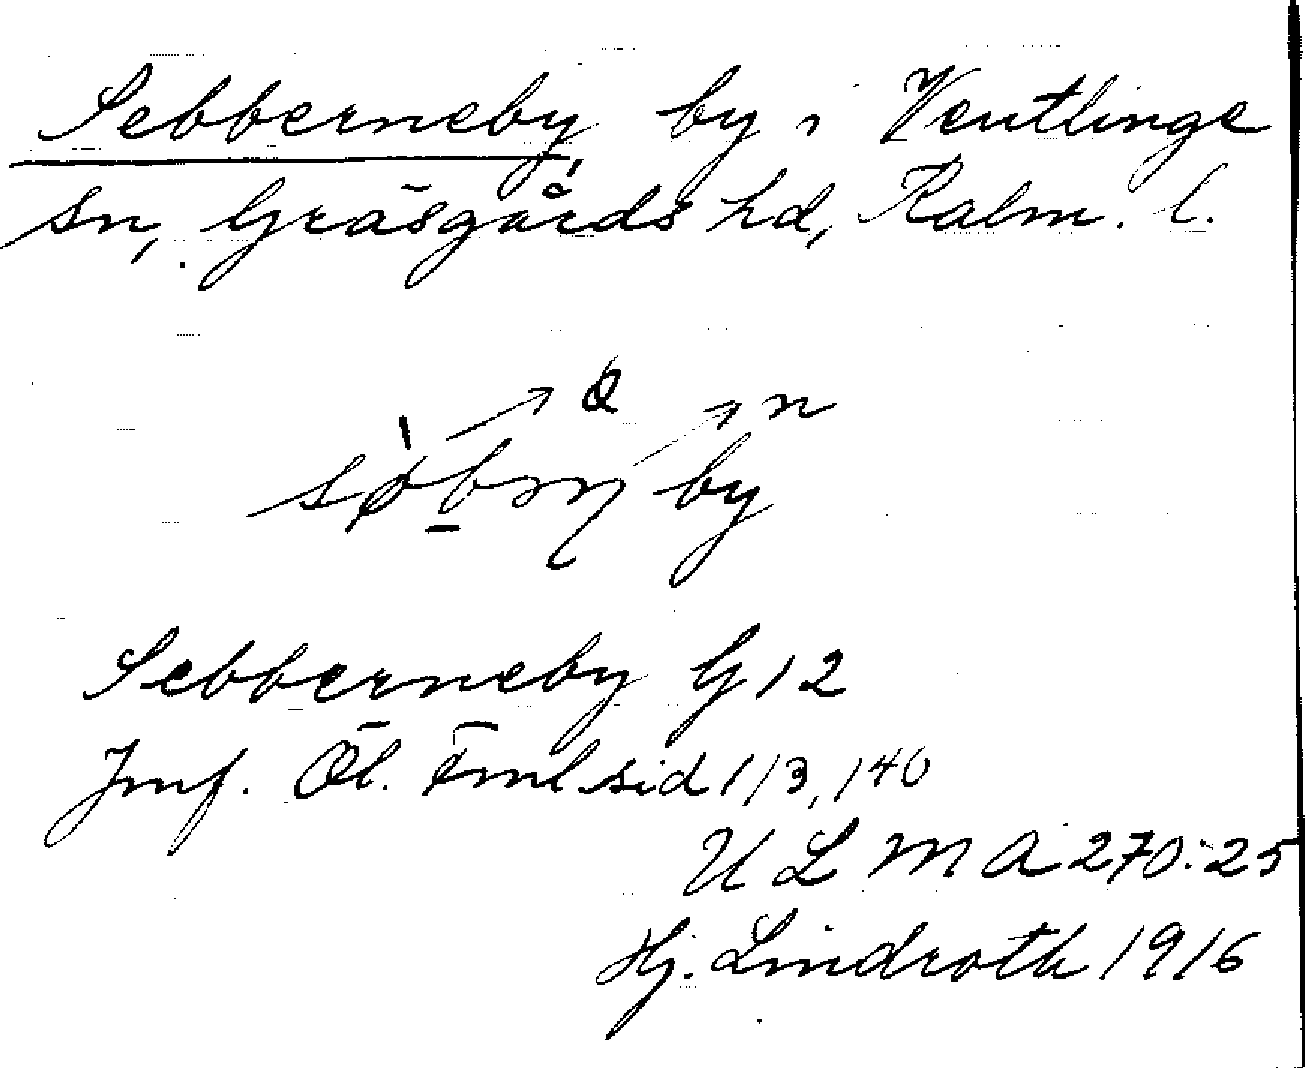 Sebberneby by i Ventlinge
sn, Gräsgårds hd, Kalm. l.
Sebberneby G 12
Jmf. Öl. Folkl sid 113, 140
U L M A 270:25
Hj. Lindroth 1916